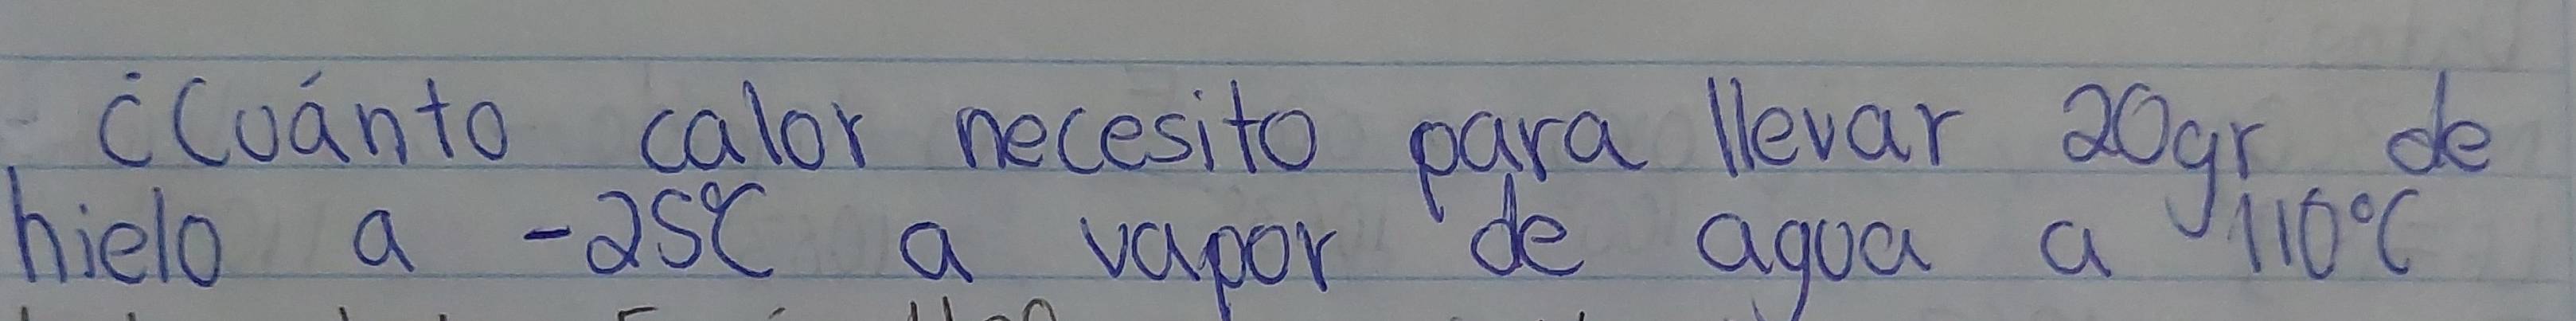 ¿Cuánto calor necesito para llevar 20gr de
hielo a -25°C a vapor de agua a 110°C